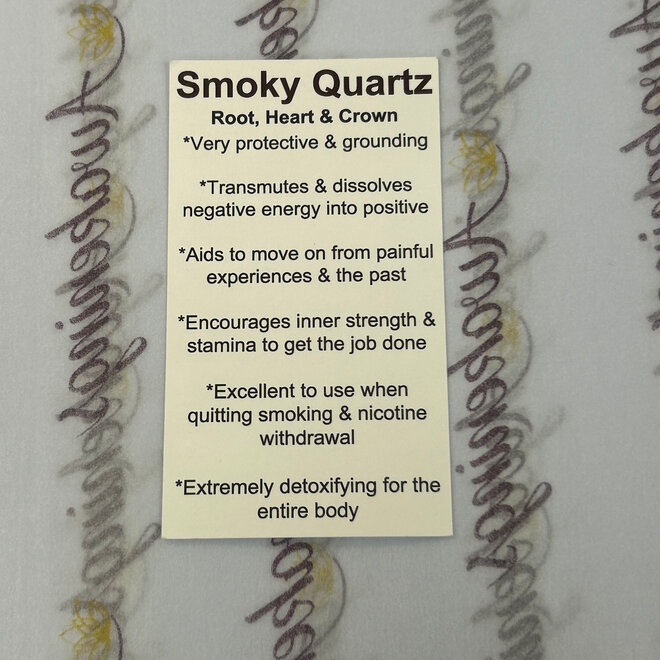 Smoky Quartz
Root, Heart & Crown
*Very protective & grounding
*Transmutes & dissolves
negative energy into positive
*Aids to move on from painful
experiences & the past
*Encourages inner strength &
stamina to get the job done
*Excellent to use when
quitting smoking & nicotine
withdrawal
*Extremely detoxifying for the
entire body